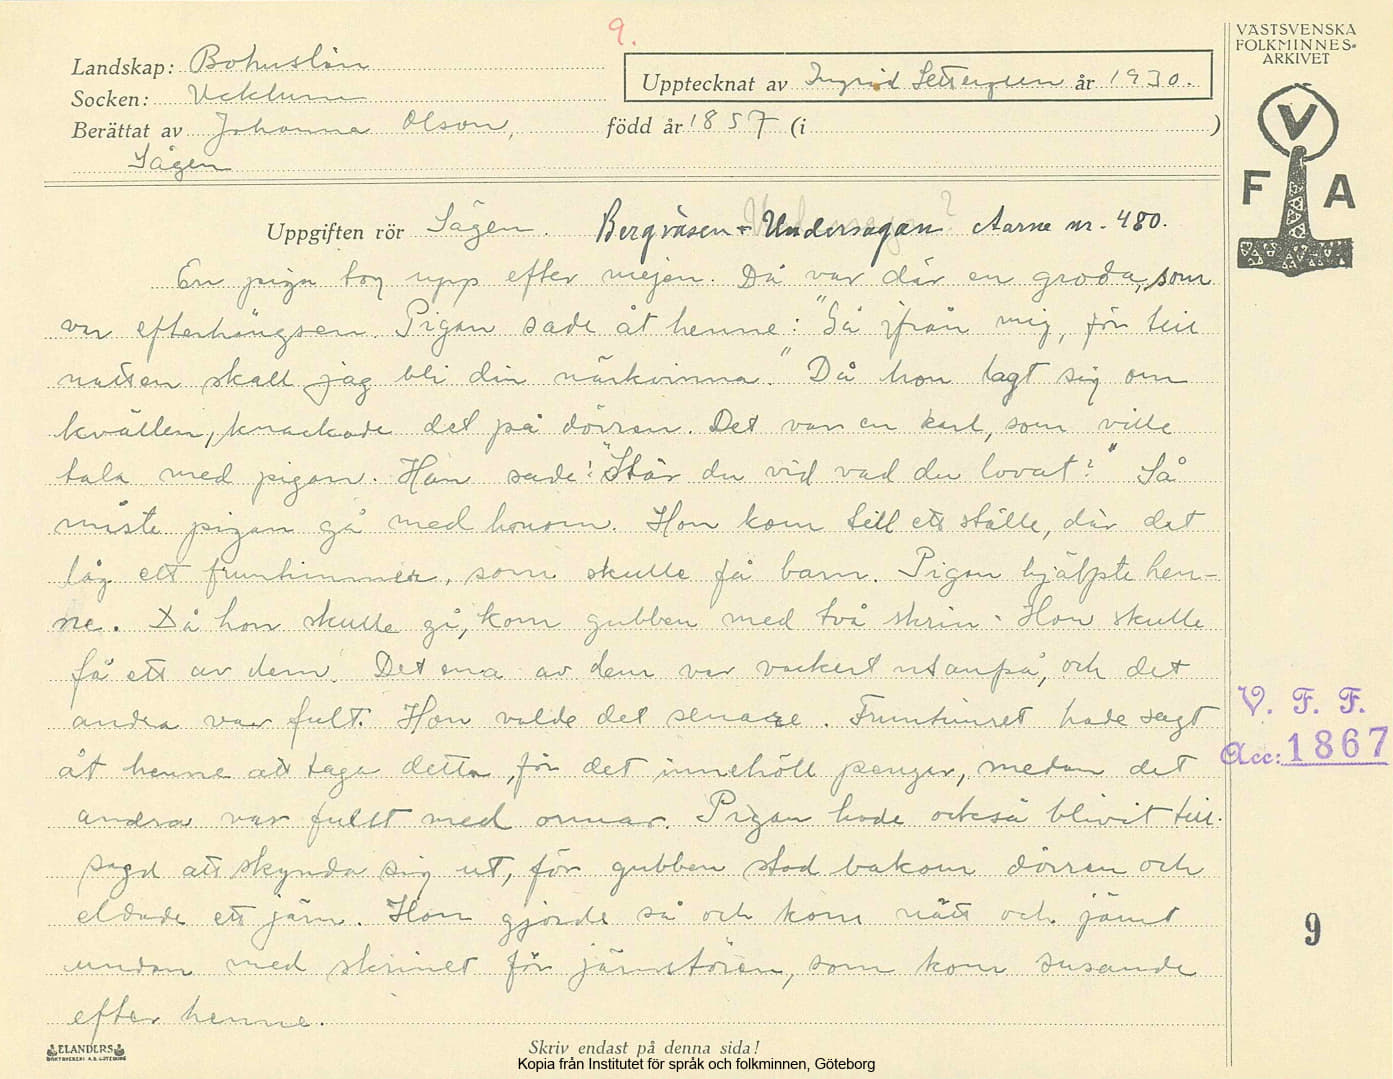 9.
Landskap: Bohuslän
Socken: Ucklum
Upptecknat av Ingrid år 1930.
Berättat av Johanna Olson, född år 1857 (i )
Sägen
VÄSTSVENSKA
FOLKMINNES-
ARKIVET
V
F A
Uppgiften rör Sägen. Bergväsen - Undersagan Aarne nr. 480.
En piga tog upp efter mejen. Då var där en groda, som
var efterhängsen. Pigan sade åt henne: "Gå ifrån mig, för till
natten skall jag bli din närkvinna." Då hon lagt sig om
kvällen, knackade det på dörren. Det var en karl, som ville
tala med pigan. Han sade: "Står du vid vad du lovat?" Så
måste pigan gå med honom. Hon kom till ett ställe, där det
låg ett fruntimmer, som skulle få barn. Pigan hjälpte hen-
ne. Då hon skulle gå, kom gubben med två skrin. Hon skulle
få ett av dem. Det ena av dem var vackert utanpå, och det
andra var fult. Hon valde det senare. Fruntimret hade sagt
åt henne att taga detta, för det innehöll pengar, medan det
andra var fullt med ormar. Pigan hade också blivit till-
sagd att skynda sig ut, för gubben stod bakom dörren och
eldade ett järn. Hon gjorde så och kom nätt och jämt
undan med skrinet för järnstören, som kom susande
efter henne.
V. F. F.
Acc: 1867
9
ELANDERS
BOKTRYCKERI A.B. GÖTEBORG
Skriv endast på denna sida!
Kopia från Institutet för språk och folkminnen, Göteborg